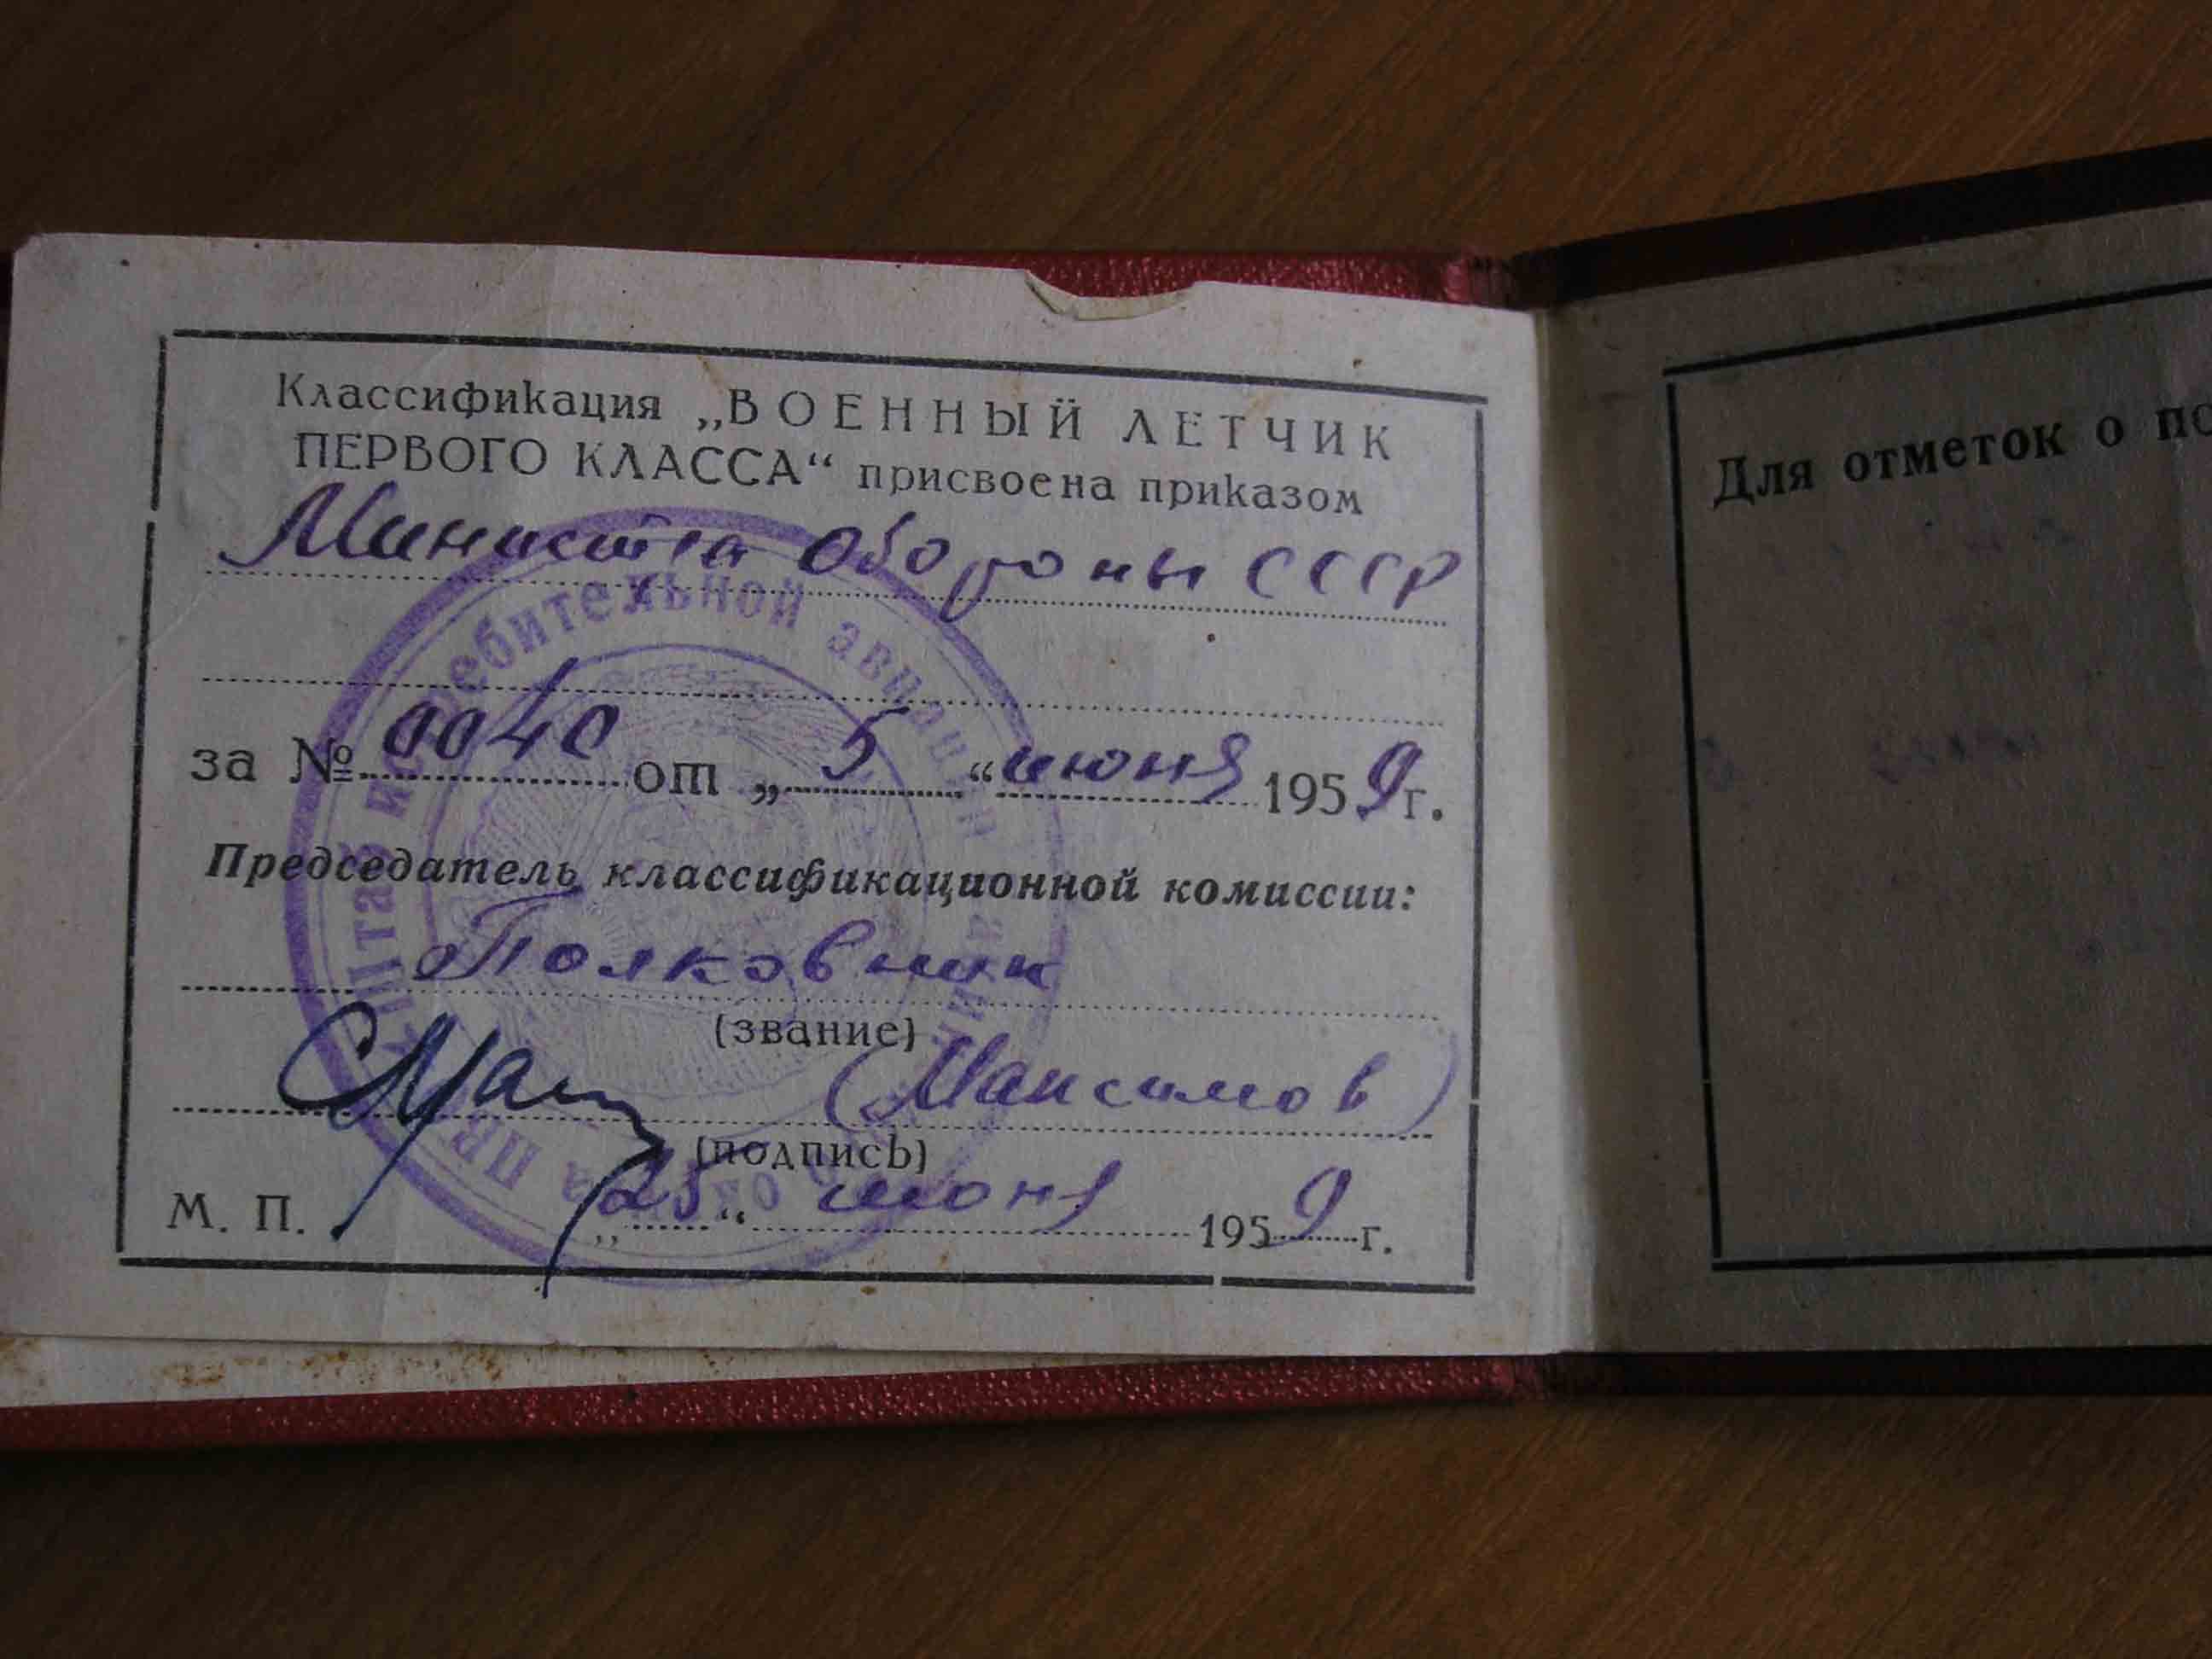 Классификация „ВОЕННЫЙ ЛЕТЧИК
ПЕРВОГО КЛАССА“ присвоена приказом
Министра Обороны СССР
за № 0040 от „ 5 “ июня 1959 г.
Председатель классификационной комиссии:
Полковник
(звание)
(Максимов)
(подпись)
М. П. „ 25 “ июня 1959 г.
Штаб истребительной авиации
округа ПВО
Для отметок о